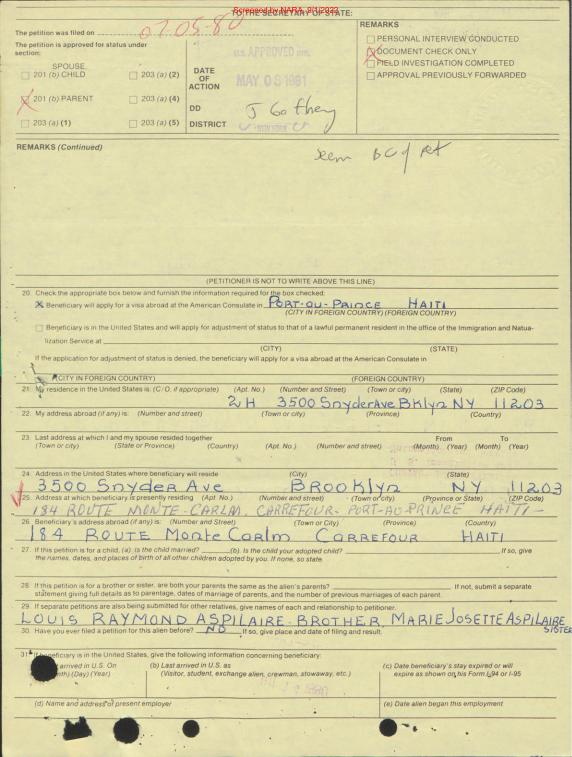 Screened by NARA, 8/1/2023
TO THE SECRETARY OF STATE:
The petition was filed on 07.05-80
The petition is approved for status under section:
SPOUSE
201 (b) CHILD
203 (a) (2)
201 (b) PARENT
203 (a) (4)
203 (a) (1)
203 (a) (5)
DATE OF ACTION
U.S. APPROVED
MAY 08 1981
DD
DISTRICT
NEW YORK
REMARKS
PERSONAL INTERVIEW CONDUCTED
DOCUMENT CHECK ONLY
FIELD INVESTIGATION COMPLETED
APPROVAL PREVIOUSLY FORWARDED
REMARKS (Continued)
(PETITIONER IS NOT TO WRITE ABOVE THIS LINE)
20. Check the appropriate box below and furnish the information required for the box checked:
Beneficiary will apply for a visa abroad at the American Consulate in PORT-OU-PRINCE HAITI
(CITY IN FOREIGN COUNTRY) (FOREIGN COUNTRY)
Beneficiary is in the United States and will apply for adjustment of status to that of a lawful permanent resident in the office of the Immigration and Natua-
lization Service at
(CITY) (STATE)
If the application for adjustment of status is denied, the beneficiary will apply for a visa abroad at the American Consulate in
(CITY IN FOREIGN COUNTRY) (FOREIGN COUNTRY)
21. My residence in the United States is: (C/O, if appropriate) (Apt. No.) (Number and street) (Town or city) (State) (ZIP Code)
2H 3500 Snyder Ave Bklyn NY 11203
22. My address abroad (if any) is: (Number and street) (Town or city) (Province) (Country)
23. Last address at which I and my spouse resided together From To
(Town or city) (State or Province) (Country) (Apt. No.) (Number and street) (Month) (Year) (Month) (Year)
24. Address in the United States where beneficiary will reside (City) (State)
3500 Snyder Ave BROOKlyn NY 11203
25. Address at which beneficiary is presently residing (Apt. No.) (Number and street) (Town or city) (Province or State) (ZIP Code)
184 ROUTE MONTE-CARLM, CARREFOUR- PORT-AU-PRINCE HAITI-
26. Beneficiary's address abroad (if any) is: (Number and Street) (Town or City) (Province) (Country)
184 ROUTE Monte Carlm CARREFOUR HAITI
27. If this petition is for a child, (a) Is the child married? (b). Is the child your adopted child? If so, give
the names, dates, and places of birth of all other children adopted by you. If none, so state.
28. If this petition is for a brother or sister, are both your parents the same as the alien's parents? If not, submit a separate
statement giving full details as to parentage, dates of marriage of parents, and the number of previous marriages of each parent.
29. If separate petitions are also being submitted for other relatives, give names of each and relationship to petitioner.
LOUIS RAYMOND ASPILAIRE-BROTHER, MARIE JOSETTE ASPILAIRE SISTER
30. Have you ever filed a petition for this alien before? NO If so, give place and date of filing and result.
31. If beneficiary is in the United States, give the following information concerning beneficiary:
arrived in U.S. On (b) Last arrived in U.S. as (c) Date beneficiary's stay expired or will
(Day) (Year) (Visitor, student, exchange alien, crewman, stowaway, etc.) expire as shown on his Form I-94 or I-95
(d) Name and address of present employer (e) Date alien began this employment